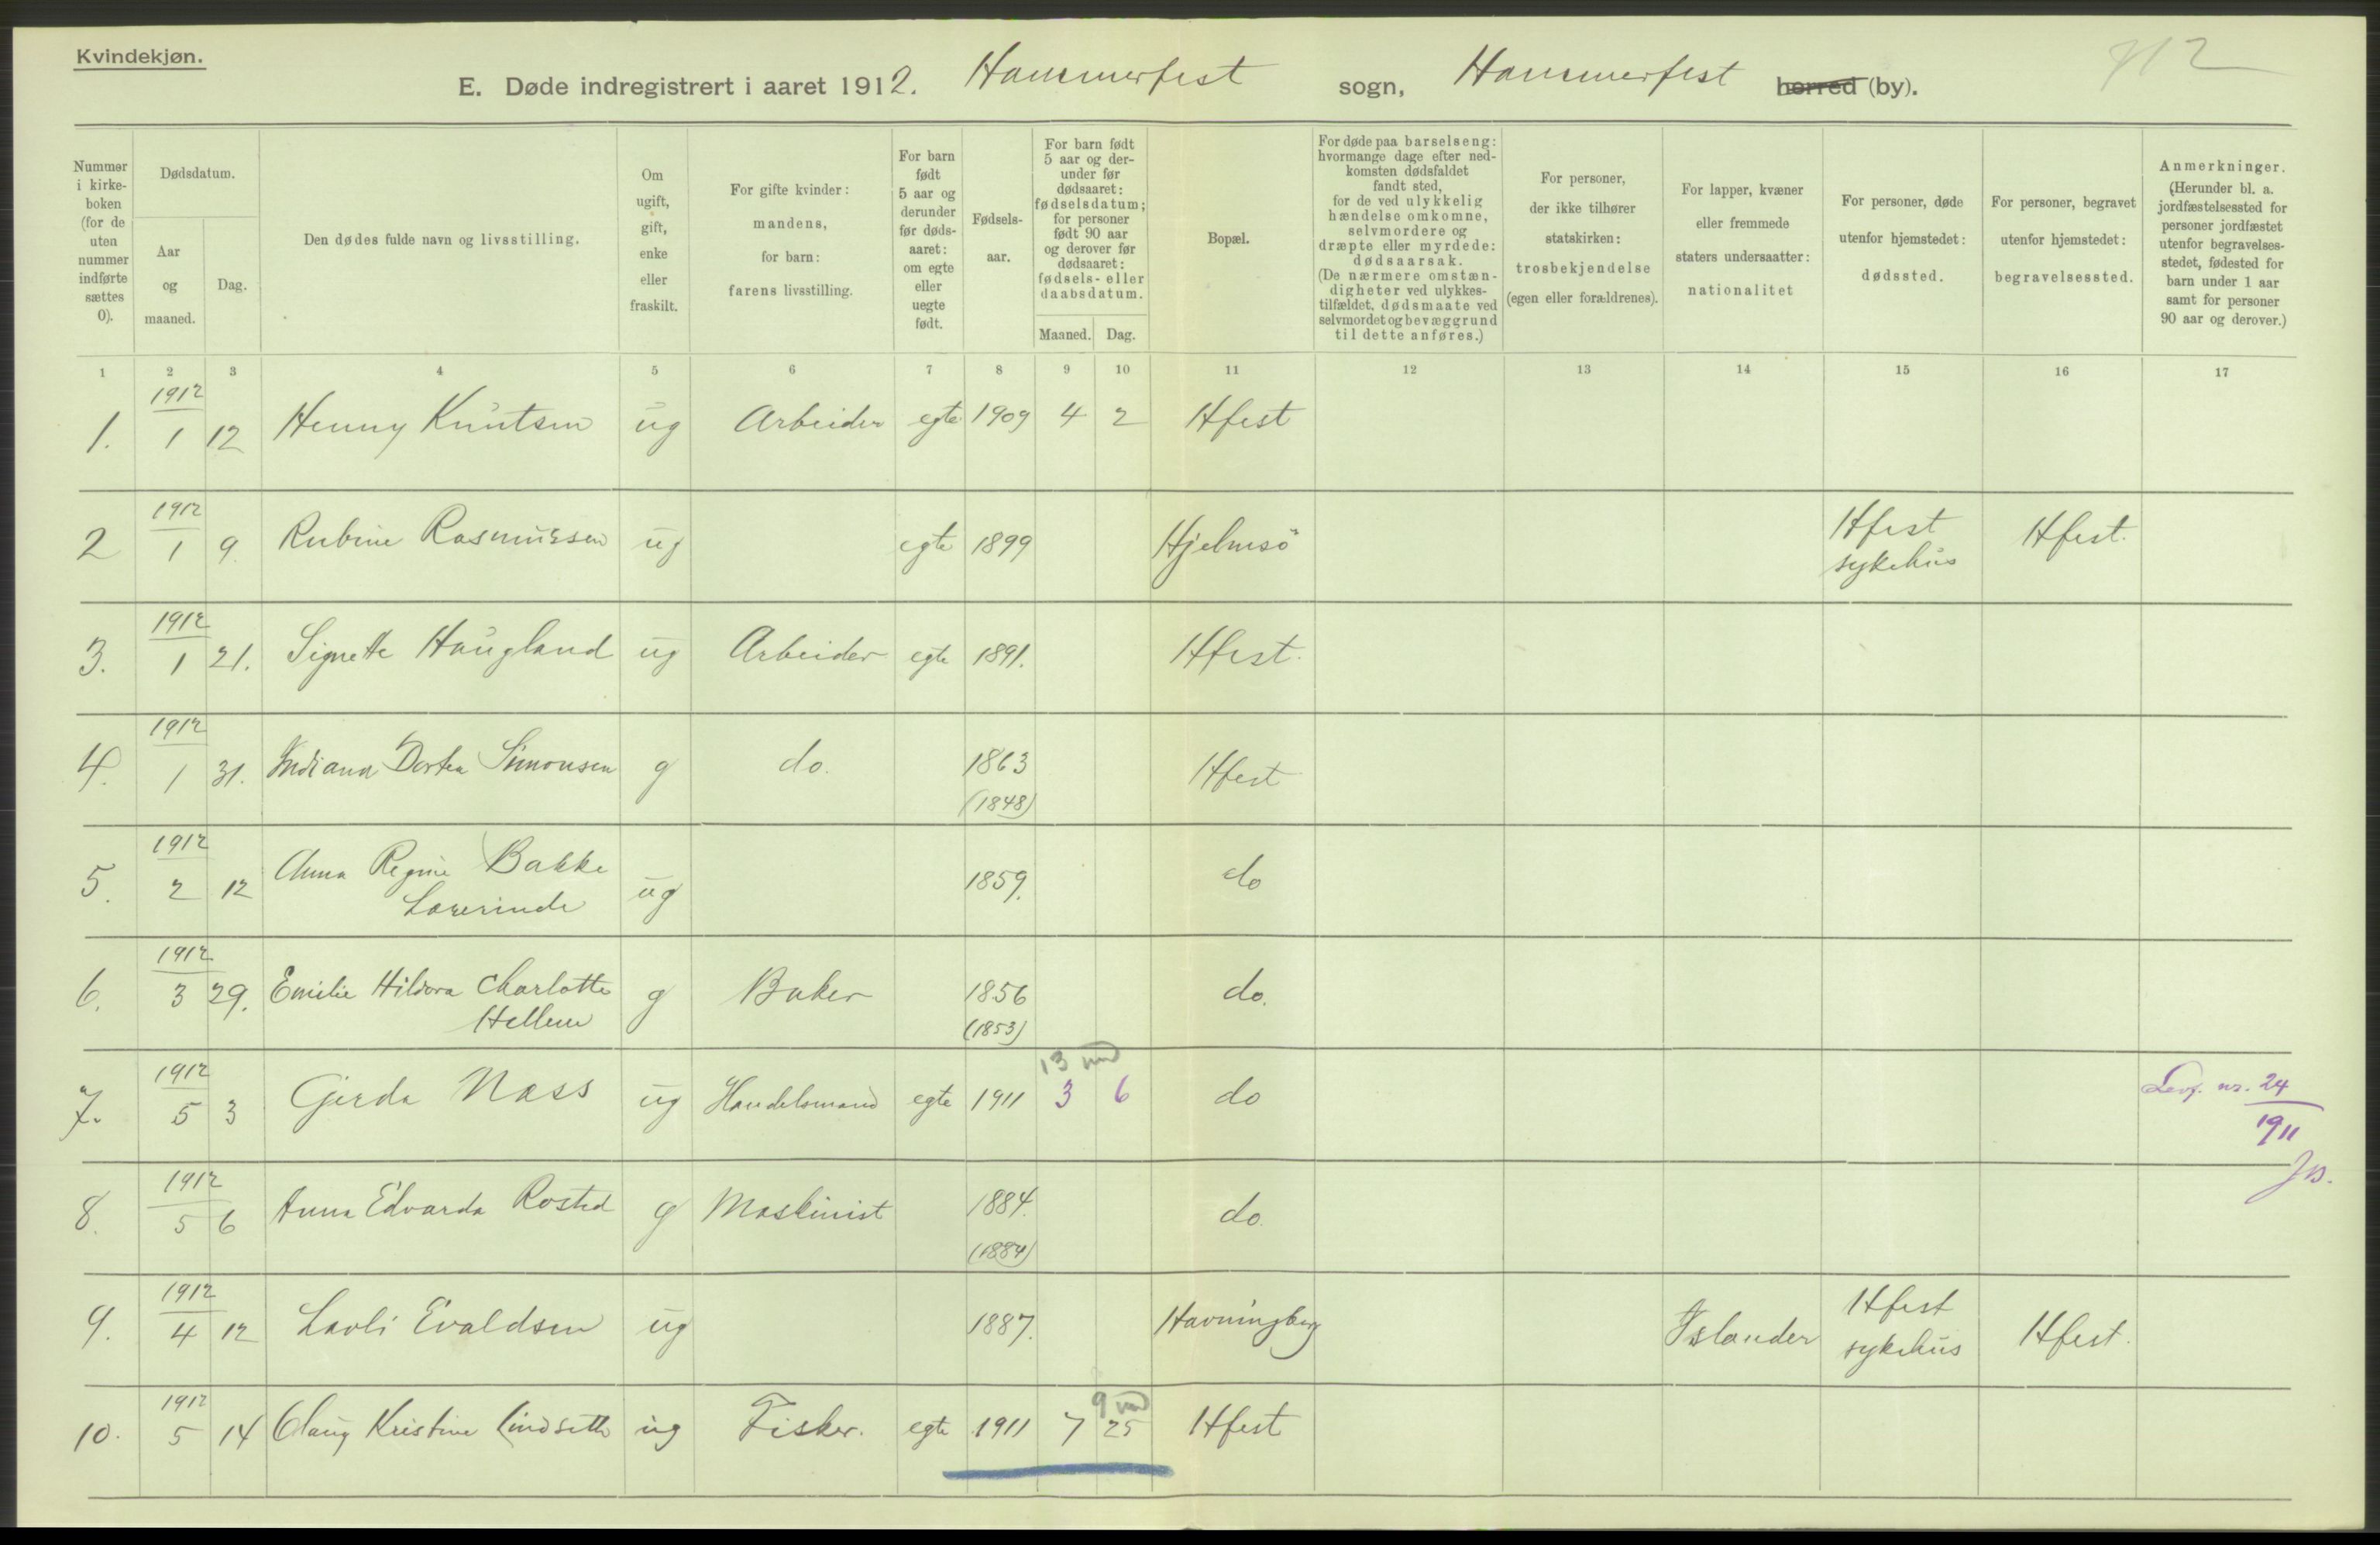 Kvindekjøn.
E. Døde indregistrert i aaret 1912. Hammerfest sogn, Hammerfest herred (by).
Nummer i kirke-boken (for de uten nummer indførte sættes 0).
Dødsdatum.
Aar og maaned.
Dag.
Den dødes fulde navn og livsstilling.
Om ugift, gift, enke eller fraskilt.
For gifte kvinder: mandens, for barn: farens livsstilling.
For barn født 5 aar og derunder før døds-aaret: om egte eller uegte født.
Fødsels-aar.
For barn født 5 aar og der-under før dødsaaret: fødselsdatum; for personer født 90 aar og derover før dødsaaret: fødsels- eller daabsdatum.
Maaned. Dag.
Bopæl.
For døde paa barselseng: hvormange dage efter ned-komsten dødsfaldet fandt sted, for de ved ulykkelig hændelse omkomne, selvmordere og dræpte eller myrdede: dødsaarsak. (De nærmere omstæn-digheter ved ulykkes-tilfældet, dødsmaate ved selvmordet og bevæggrund til dette anføres.)
For personer, der ikke tilhører statskirken: trosbekjendelse (egen eller forældrenes).
For lapper, kvæner eller fremmede staters undersaatter: nationalitet
For personer, døde utenfor hjemstedet: dødssted.
For personer, begravet utenfor hjemstedet: begravelsessted.
Anmerkninger. (Herunder bl. a. jordfæstelsessted for personer jordfæstet utenfor begravelses-stedet, fødested for barn under 1 aar samt for personer 90 aar og derover.)
1 2 3 4 5 6 7 8 9 10 11 12 13 14 15 16 17
1. 1912 1 12 Henny Knutsen ug Arbeider egte 1909 4 2 Hfest
2 1912 1 9. Rubine Rasmussen ug egte 1899 Hjelmsö Hfest sykehus Hfest.
3. 1912 1 21. Signette Haugland ug Arbeider egte 1891. Hfest.
4. 1912 1 31. Indiana Dortea Simonsen g do. 1863 (1848) Hfest
5. 1912 2 12 Anna Regine Bakke Lærerinde ug 1859. do
6. 1912 3 29. Emilie Hildora Charlotte Hellem g Baker 1856 (1853) do.
7. 1912 5 3 Gerda Nass ug Handelsmand egte 1911 13 md 3 6 do Lev. nr. 24 1911
8. 1912 5 6 Anna Edvarda Rosted g Maskinist 1884. (1884) do.
9. 1912 4 12 Lavli Evaldsen ug 1887. Havningberg Islander Hfest sykehus Hfest.
10. 1912 5 14 Olaug Kristine Lindseth ug Fisker. egte 1911 9 md 7 25 Hfest